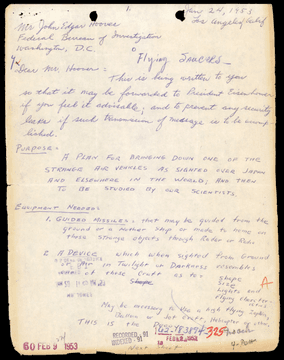 1.
Mr. John Edgar Hoover
Jan 24, 1953
Federal Bureau of Investigation
Los Angeles, Calif
Washington, D.C.
Flying Saucers
Dear Mr. Hoover:-
This is being written to you
so that it may be forwarded to President Eisenhower
if you feel it advisable, and to prevent any security
leaks if such transmission of message is to be accomp-
lished.
PURPOSE:-
A PLAN FOR BRINGING DOWN ONE OF THE
STRANGE AIR VEHICLES AS SIGHTED OVER JAPAN
AND ELSEWHERE IN THE WORLD; AND THEN
TO BE STUDIED BY OUR SCIENTISTS.
EQUIPMENT NEEDED:-
1. GUIDED MISSILES: that may be guided from the
ground or a mother ship or made to home on
these strange objects through Radar or Radio.
2. A DEVICE which when sighted from Ground
or Air in Twilight or Darkness resembles
of these Craft as to:- Shape
Size
Lights and
Flying
A
May be necessary to use a high flying
Craft,
THIS IS the
325
RECORDED - 91
INDEXED - 91
FEB 1953
60 FEB 9 1953